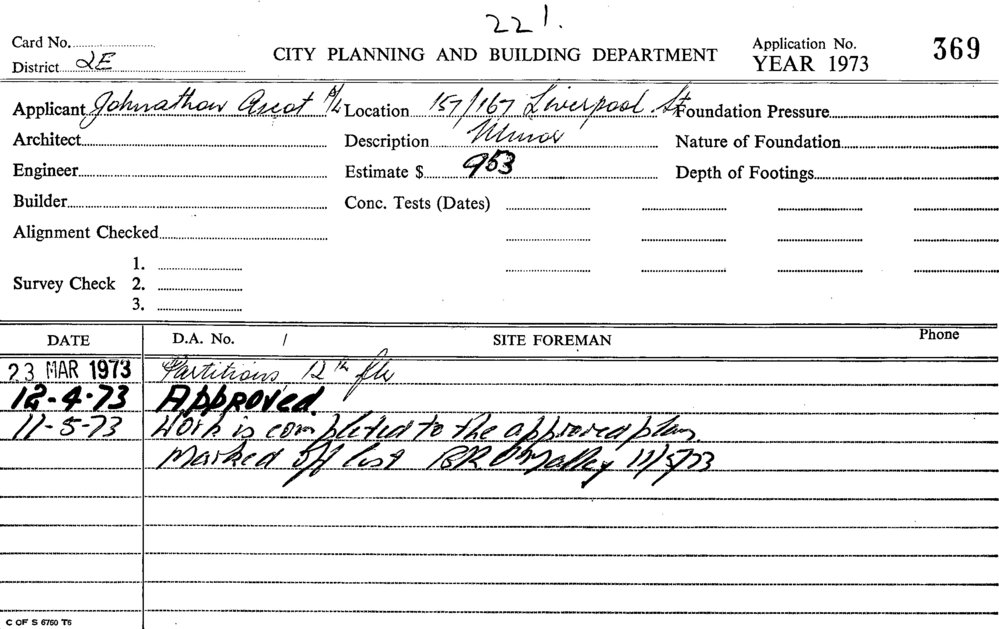 221.
Card No.
District 2E
CITY PLANNING AND BUILDING DEPARTMENT
Application No.
YEAR 1973
369
Applicant Johnathon Ascot P/L Location 157/167 Liverpool St Foundation Pressure
Architect Description Minor Nature of Foundation
Engineer Estimate $ 953 Depth of Footings
Builder Conc. Tests (Dates)
Alignment Checked
1.
Survey Check 2.
3.
DATE D.A. No. / SITE FOREMAN Phone
23 MAR 1973 Partitions, 12th flr
12-4-73 Approved.
11-5-73 Work is completed to the approved plan.
Marked off list BR O'Malley 11/5/73
C OF S 6760 T6